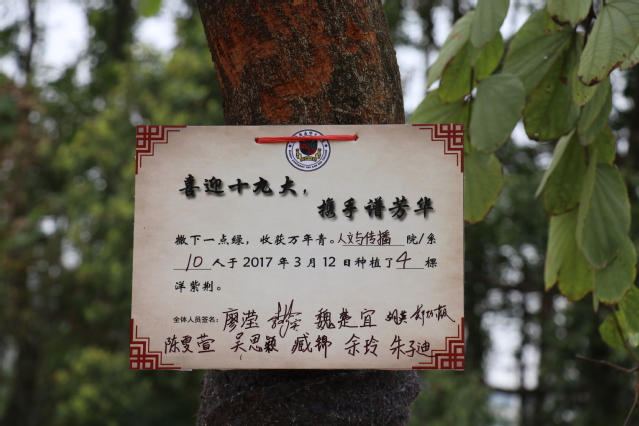 喜迎十九大，
携手谱芳华
撒下一点绿，收获万年青。人文与传播院/系
10人于2017年3月12日种植了4棵
洋紫荆。
全体人员签名：廖滢 魏楚宜
陈雯萱 吴思颖 臧锦 余玲 朱子迪